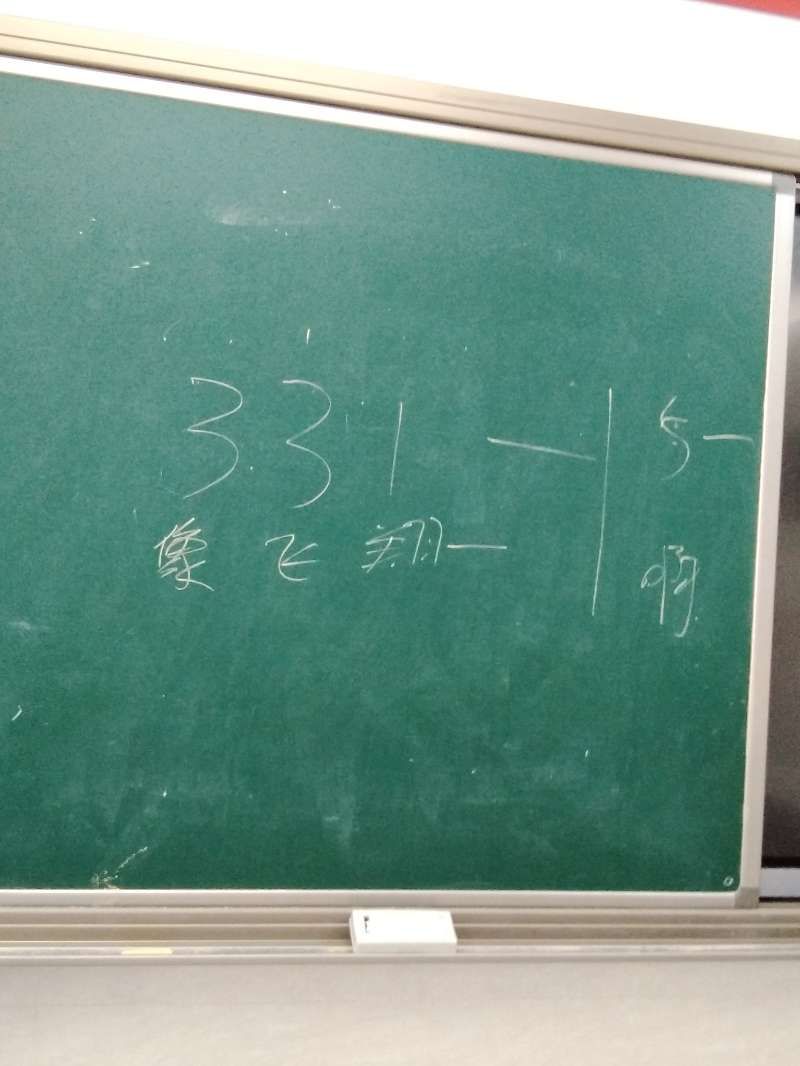 3 3 1 — | 5 —
像 飞 翔 — 啊